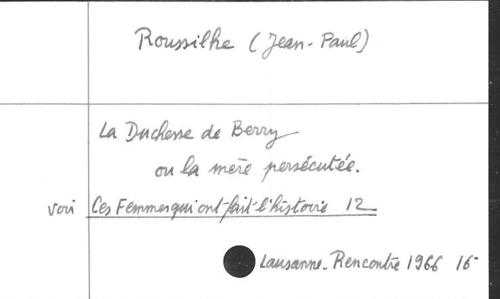 Roussilhe (Jean-Paul)
La Duchesse de Berry
ou la mère persécutée.
voir Ces Femmes qui ont fait l'histoire 12
Lausanne. Rencontre 1966 16-